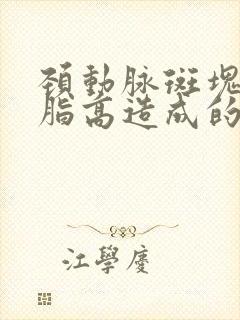 頚動脉斑塊
脂高造成的
江學慶